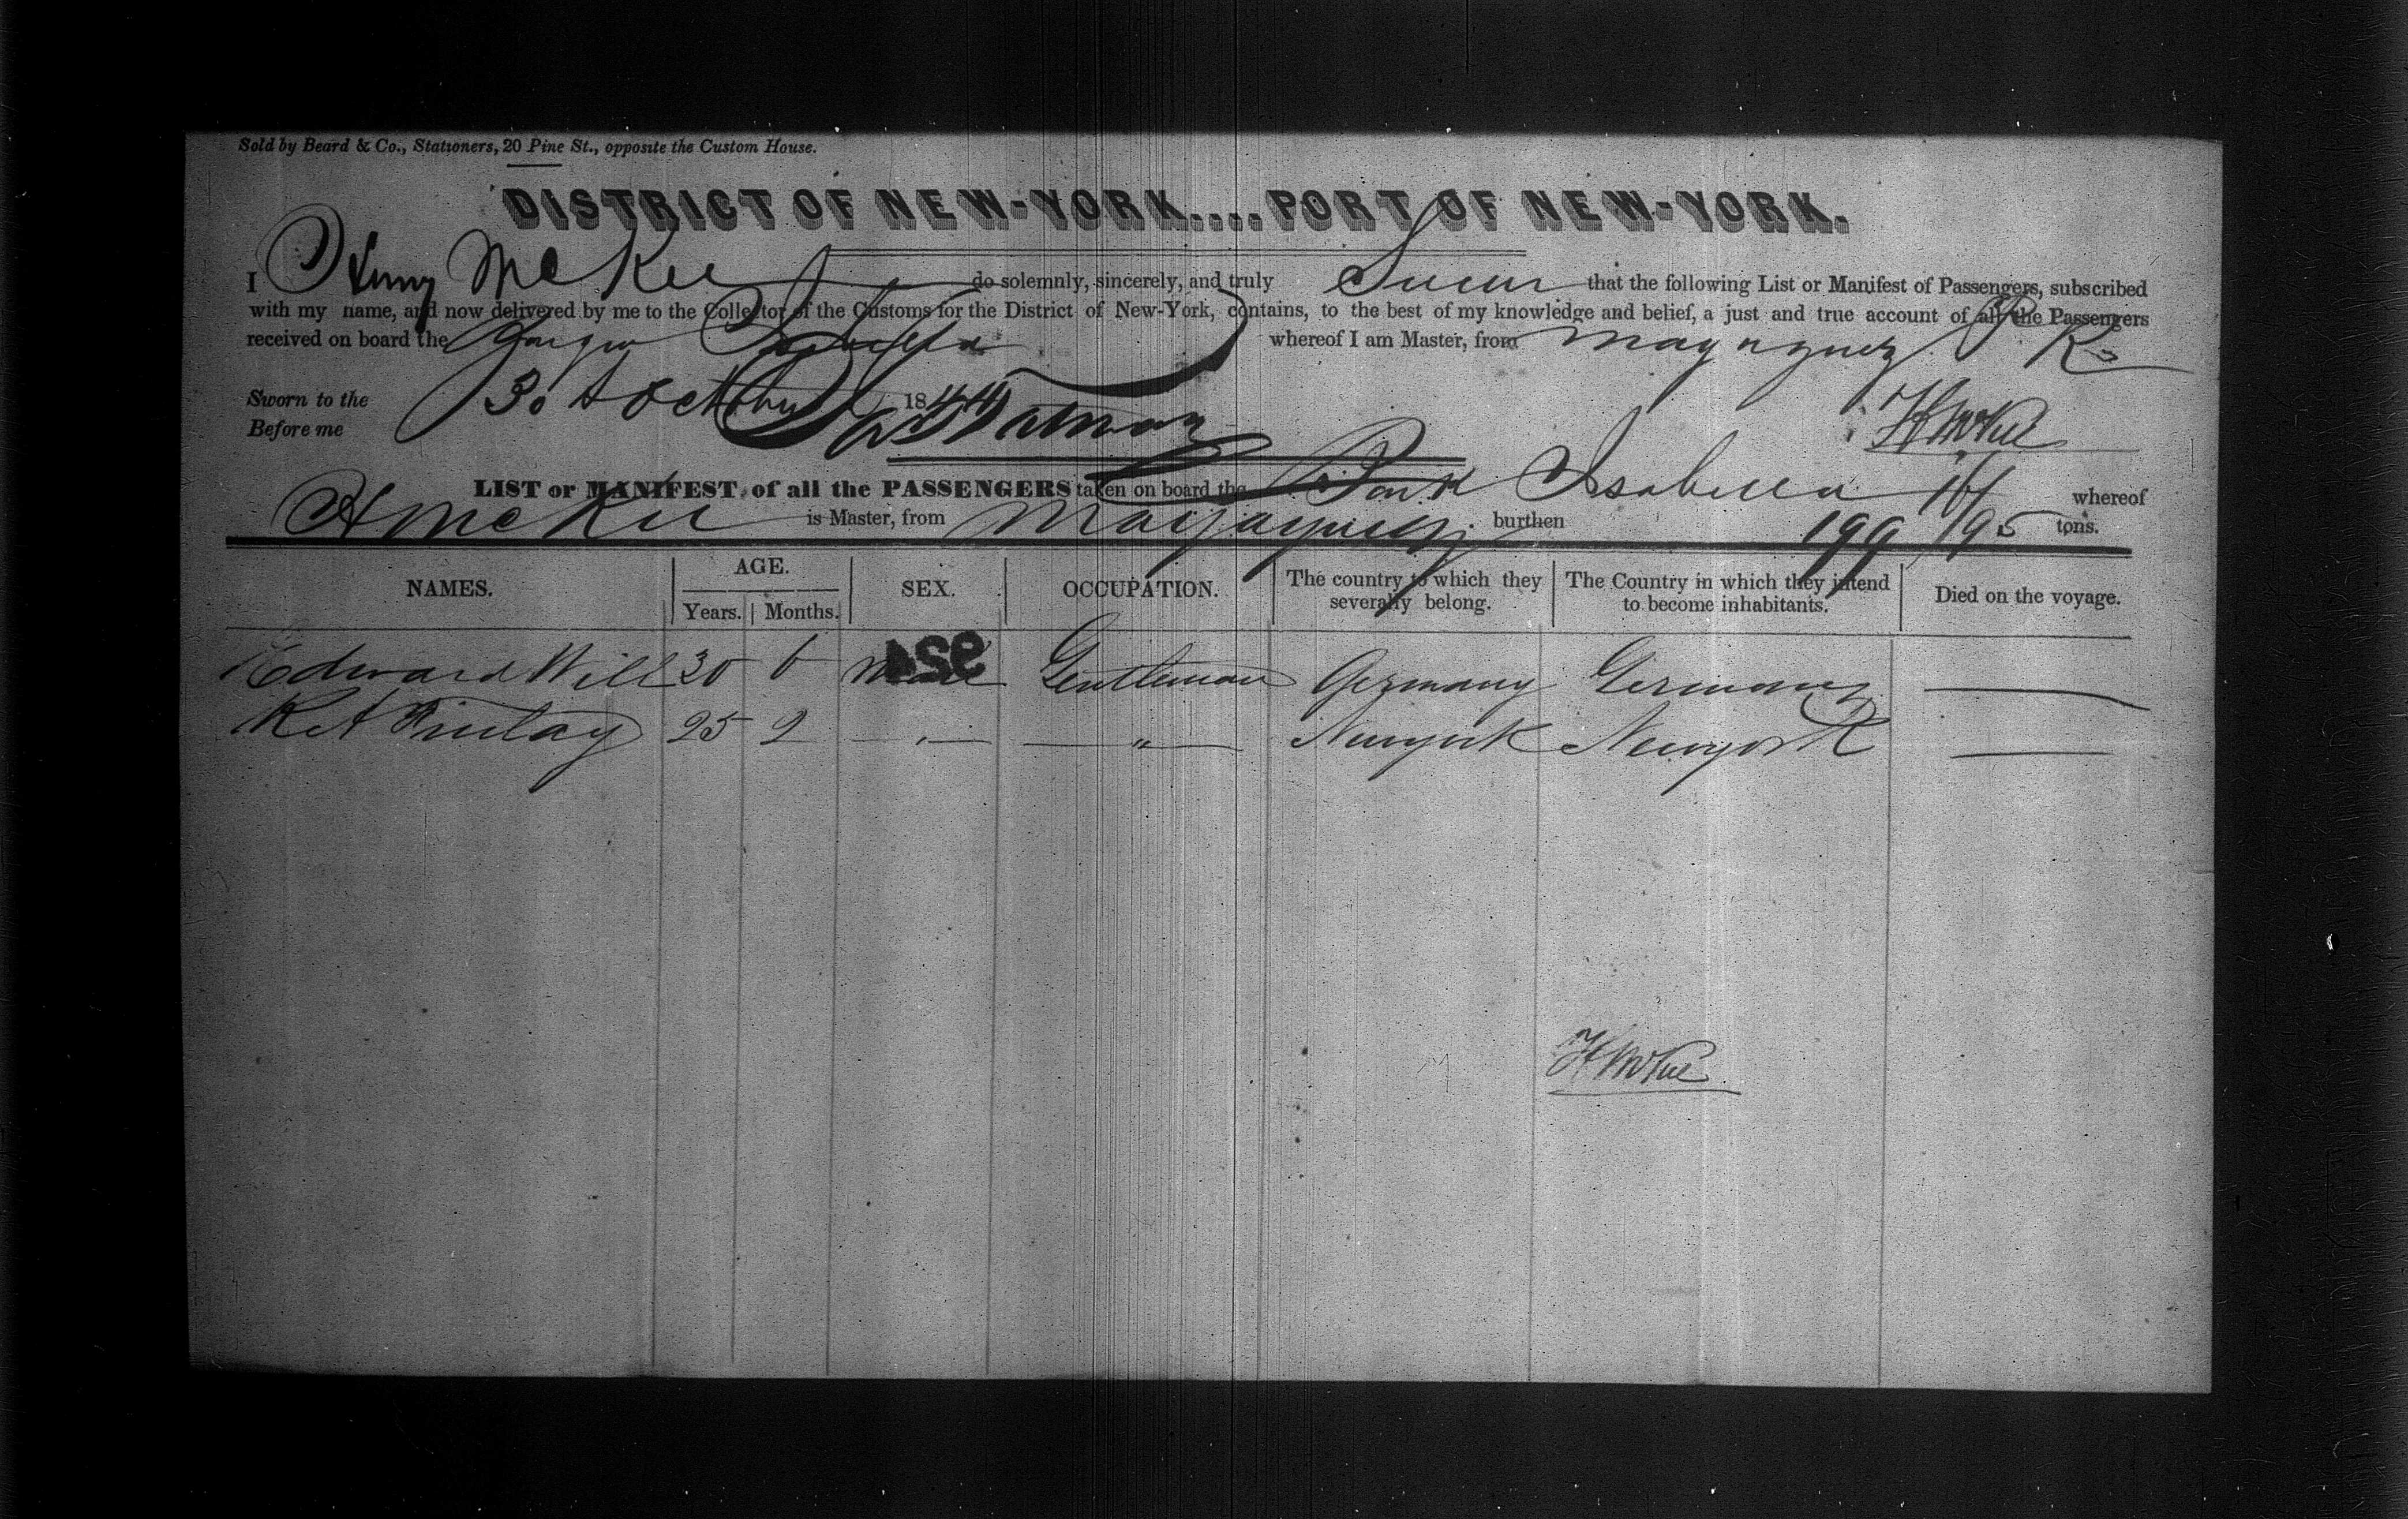 Sold by Beard & Co., Stationers, 20 Pine St., opposite the Custom House.
DISTRICT OF NEW-YORK....PORT OF NEW-YORK.
I Henry McKee do solemnly, sincerely, and truly Swear that the following List or Manifest of Passengers, subscribed
with my name, and now delivered by me to the Collector of the Customs for the District of New-York, contains, to the best of my knowledge and belief, a just and true account of all the Passengers
received on board the Isabella whereof I am Master, from Mayaguez P R
Sworn to the 30 October 1844
Before me
H McKee
LIST or MANIFEST, of all the PASSENGERS taken on board the Isabella whereof
H McKee is Master, from Mayaguez burthen 199 /95 tons.
NAMES. AGE. SEX. OCCUPATION. The country to which they severally belong. The Country in which they intend to become inhabitants. Died on the voyage.
Years. Months.
Edward Will 30 6 Male Gentleman Germany Germany
R A Finlay 25 2 " " Newyork Newyork
924
H McKee